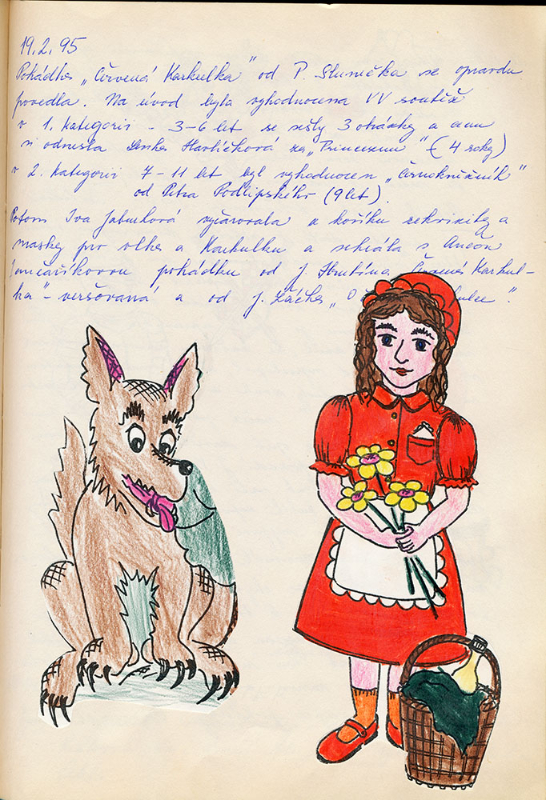 19.2.95
Pohádka „Červená Karkulka" od P. Sluníčka se opravdu
povedla. Na úvod byla vyhodnocena VV soutěž
v 1. kategorii - 3-6 let se sešly 3 obrázky a cenu
si odnesla Lenka Havlíčková za „Princeznu" (4 roky)
v 2. kategorii 7-11 let byl vyhodnocen „Černokněžník"
od Petra Podlipského (9 let).
Potom Iva vyčarovala z košíku rekvizity a
masky pro vlka a Karkulku a sehrála s
pohádku od J. Hrubína Červená Karkul-
ka" - veršovaná a od J. Žáčka „O